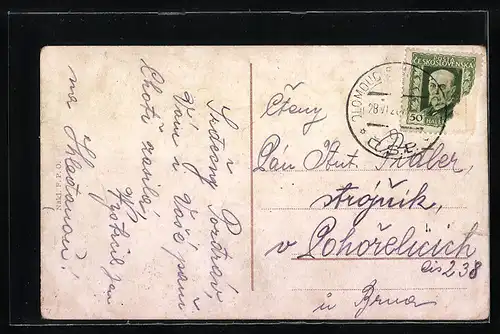 Srdečný Pozdrav,
Vám i Vaší paní
Choti zasílá,
Vystrčil Jan
na Shledanou!
OLOMOUC
ČESKOSLOVENSKÁ
50
Ctěný
Pán Ant.
strojník
v Pohořelicích
čís 238
u Brna